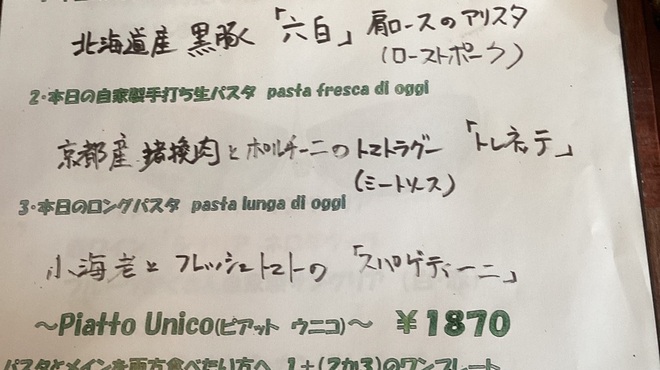 北海道産 黒豚「六白」肩ロースのアリスタ
(ローストポーク)
2・本日の自家製手打ち生パスタ pasta fresca di oggi
京都産 猪挽肉とポルチーニのトマトラグー「トレネッテ」
(ミートソース)
3・本日のロングパスタ pasta lunga di oggi
小海老とフレッシュトマトの「スパゲティーニ」
~Piatto Unico(ピアット ウニコ)~ ¥1870
パスタとメインを両方食べたい方へ 1+(2か3)のワンプレート